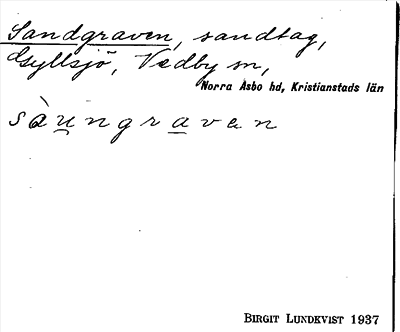 Sandgraven, sandtag,
Gyllsjö, Vedby sn,
Norra Åsbo hd, Kristianstads län
sàungraven
BIRGIT LUNDKVIST 1937